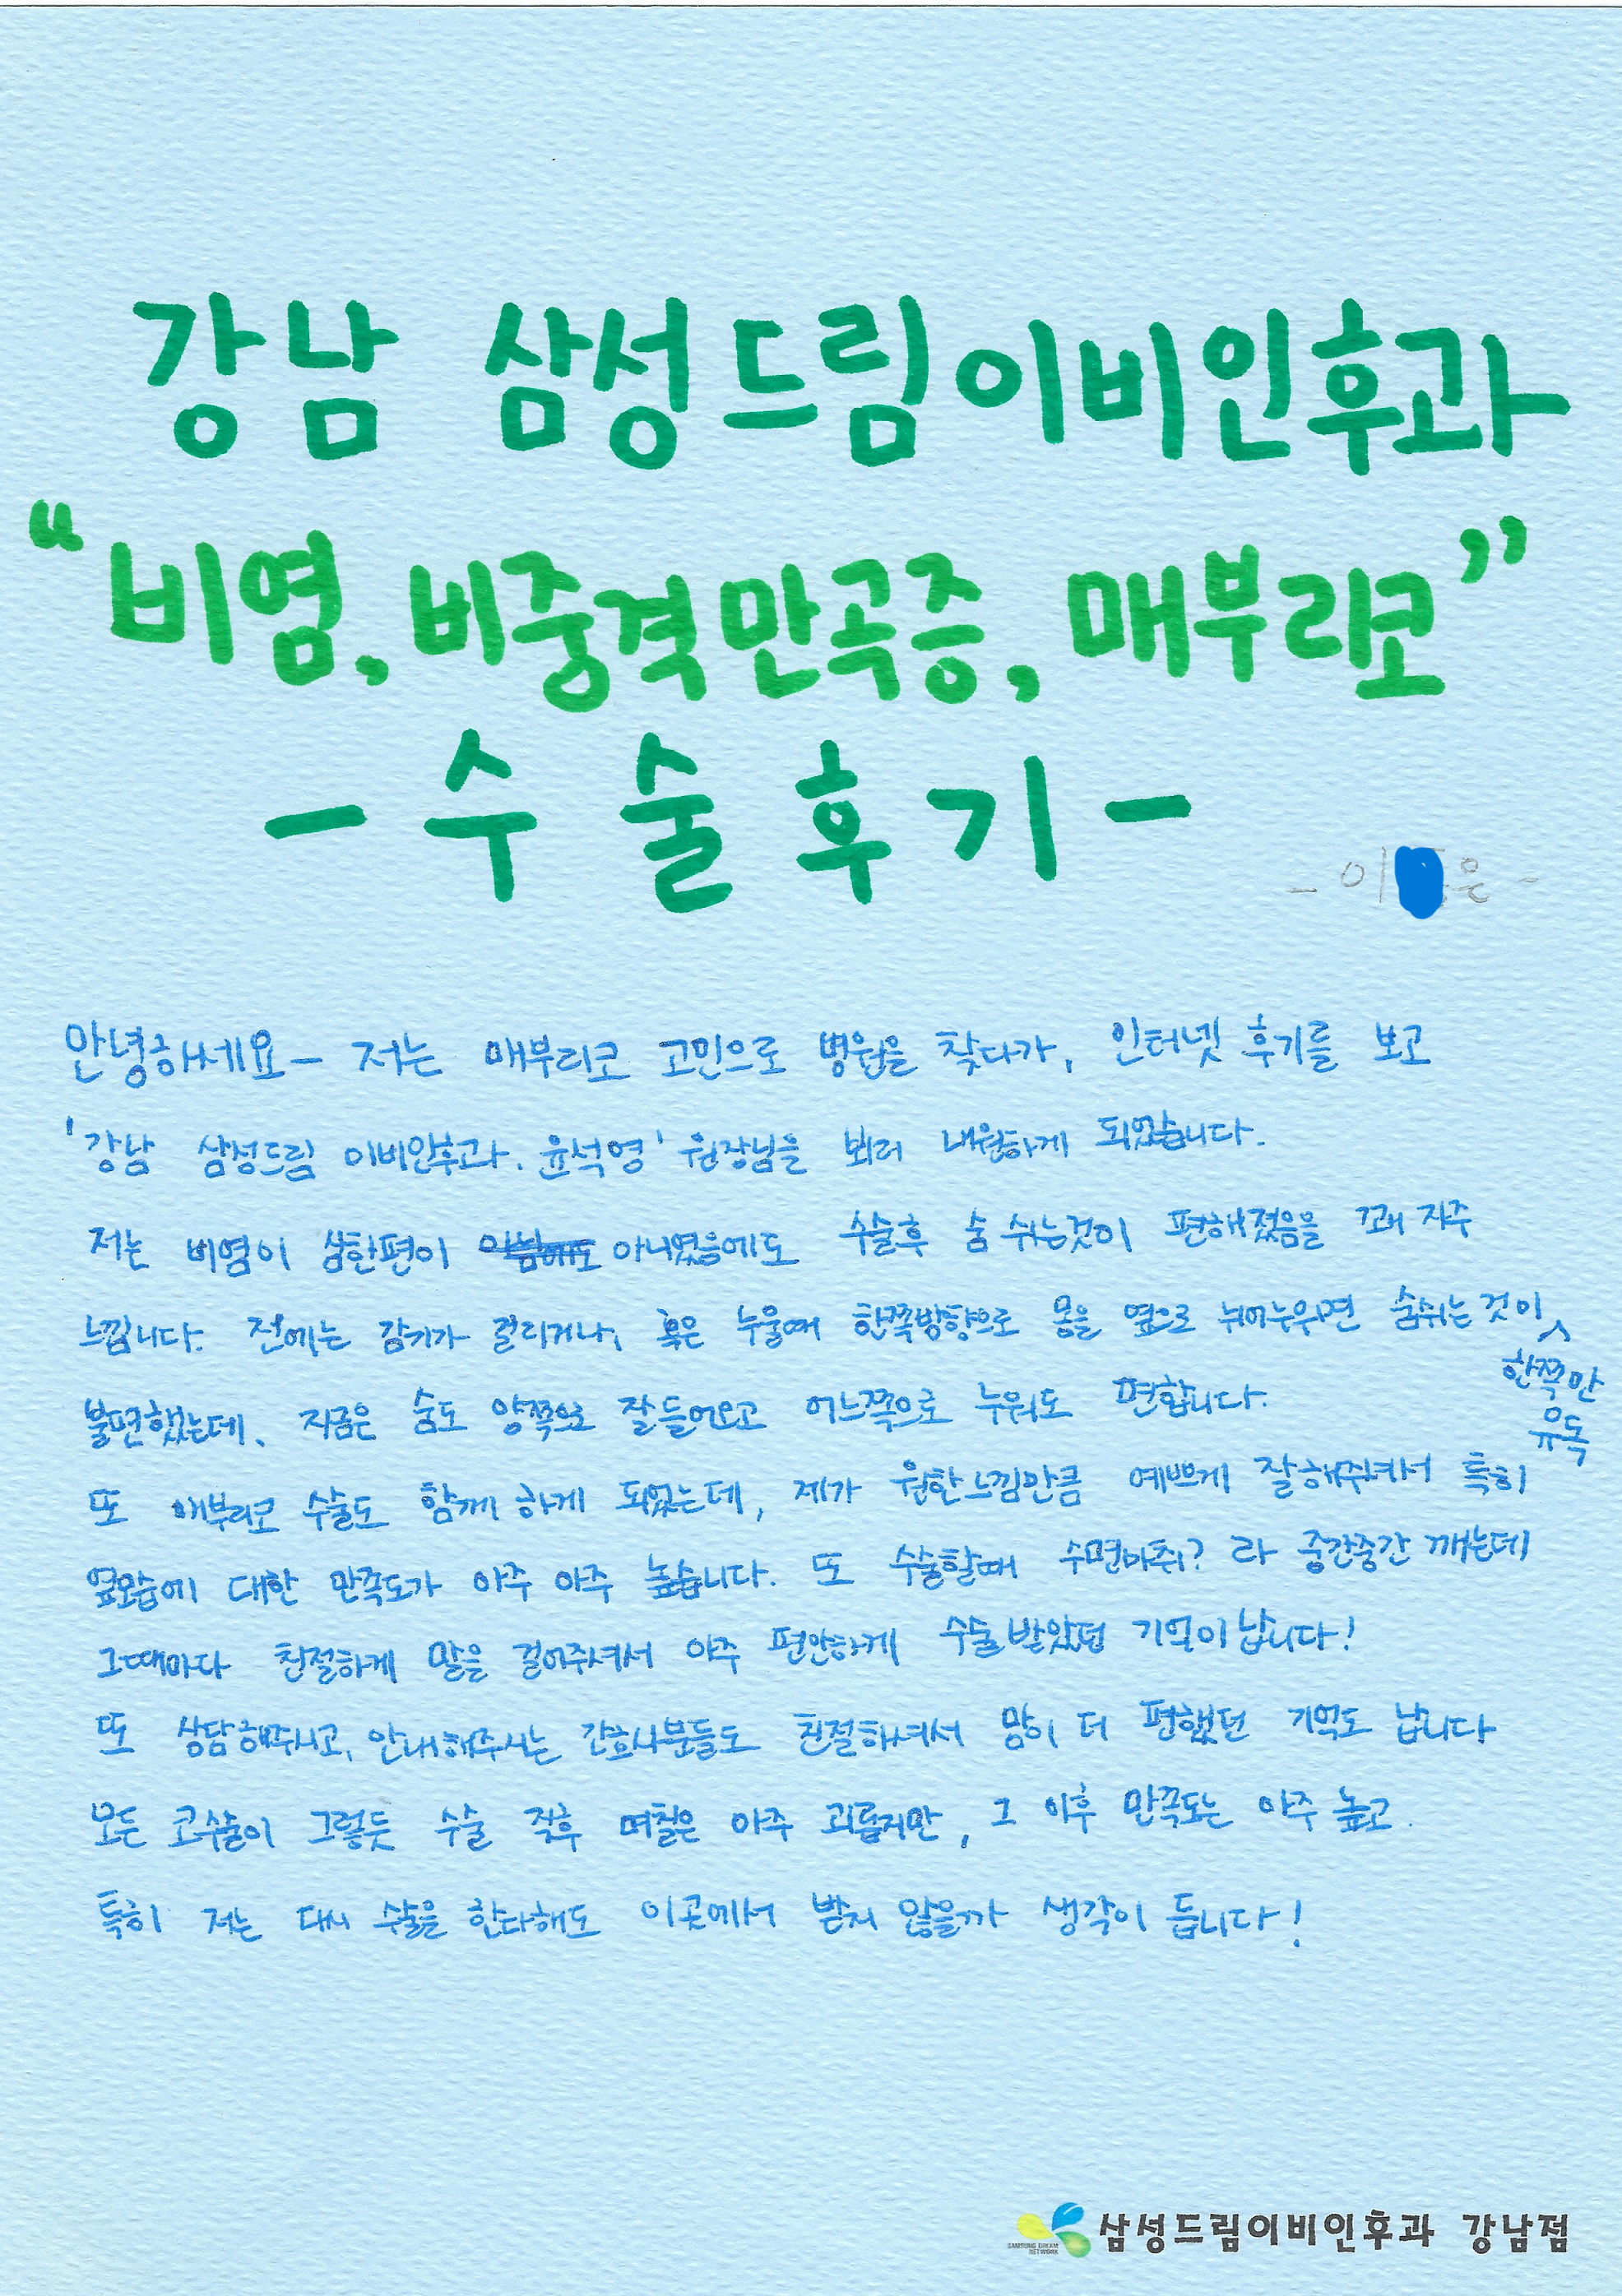 강남 삼성드림이비인후과
“비염, 비중격만곡증, 매부리코”
- 수술후기 -
- 이 은 -
안녕하세요- 저는 매부리코 고민으로 병원을 찾다가, 인터넷 후기를 보고
'강남 삼성드림 이비인후과. 윤석영' 원장님을 뵈러 내원하게 되었습니다.
저는 비염이 심한편이 아니었음에도 수술후 숨 쉬는것이 편해졌음을 꽤 자주
느낍니다. 전에는 감기가 걸리거나, 혹은 누울때 한쪽방향으로 몸을 옆으로 뉘어누우면 숨쉬는 것이
한쪽만
유독
불편했는데, 지금은 숨도 양쪽으로 잘 들어오고 어느쪽으로 누워도 편합니다.
또 매부리코 수술도 함께 하게 되었는데, 제가 원한느낌만큼 예쁘게 잘해주셔서 특히
옆모습에 대한 만족도가 아주 아주 높습니다. 또 수술할때 수면마취? 라 중간중간 깨는데
그때마다 친절하게 말을 걸어주셔서 아주 편안하게 수술받았던 기억이 납니다!
또 상담해주시고, 안내해주시는 간호사분들도 친절하셔서 맘이 더 편했던 기억도 납니다
모든 코수술이 그렇듯 수술 직후 며칠은 아주 괴롭지만, 그 이후 만족도는 아주 높고.
특히 저는 다시 수술을 한다해도 이곳에서 받지 않을까 생각이 듭니다!
SAMSUNG DREAM
NETWORK
삼성드림이비인후과 강남점